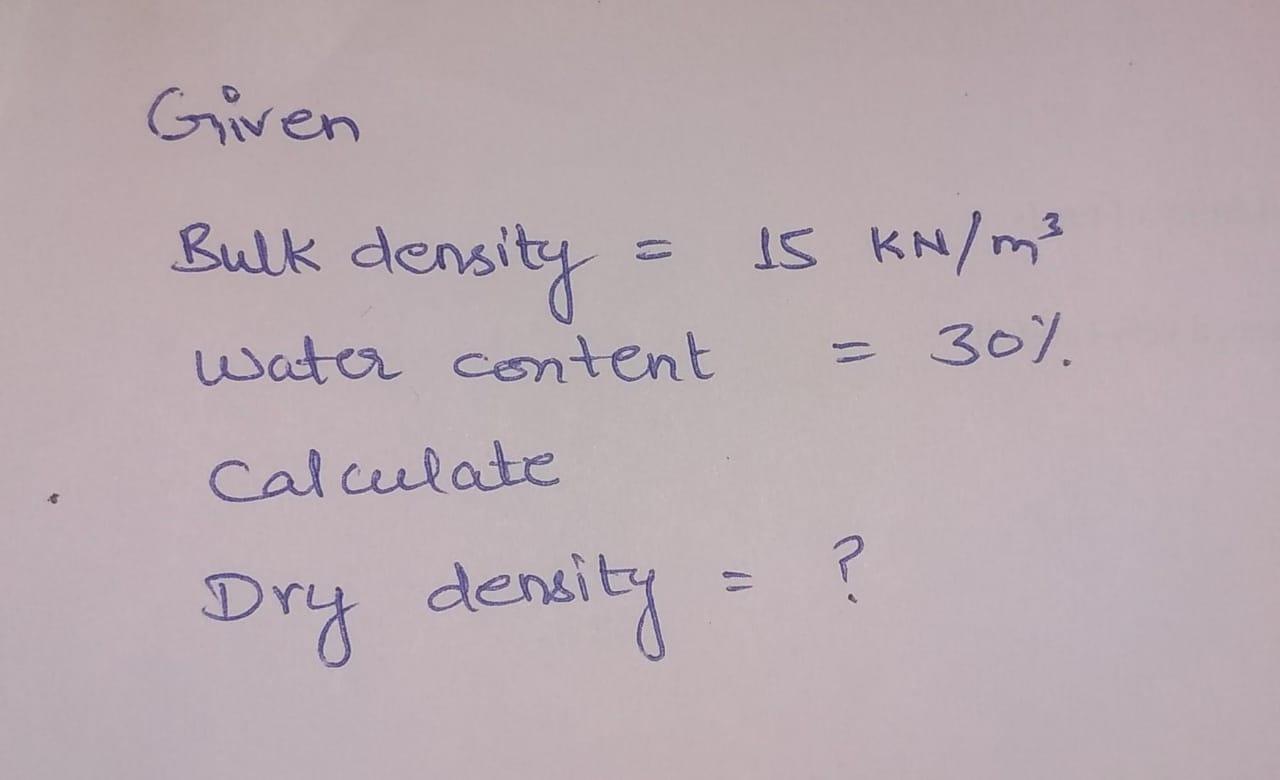 Given
Bulk density = 15 KN/m³
Water content = 30%.
Calculate
Dry density = ?